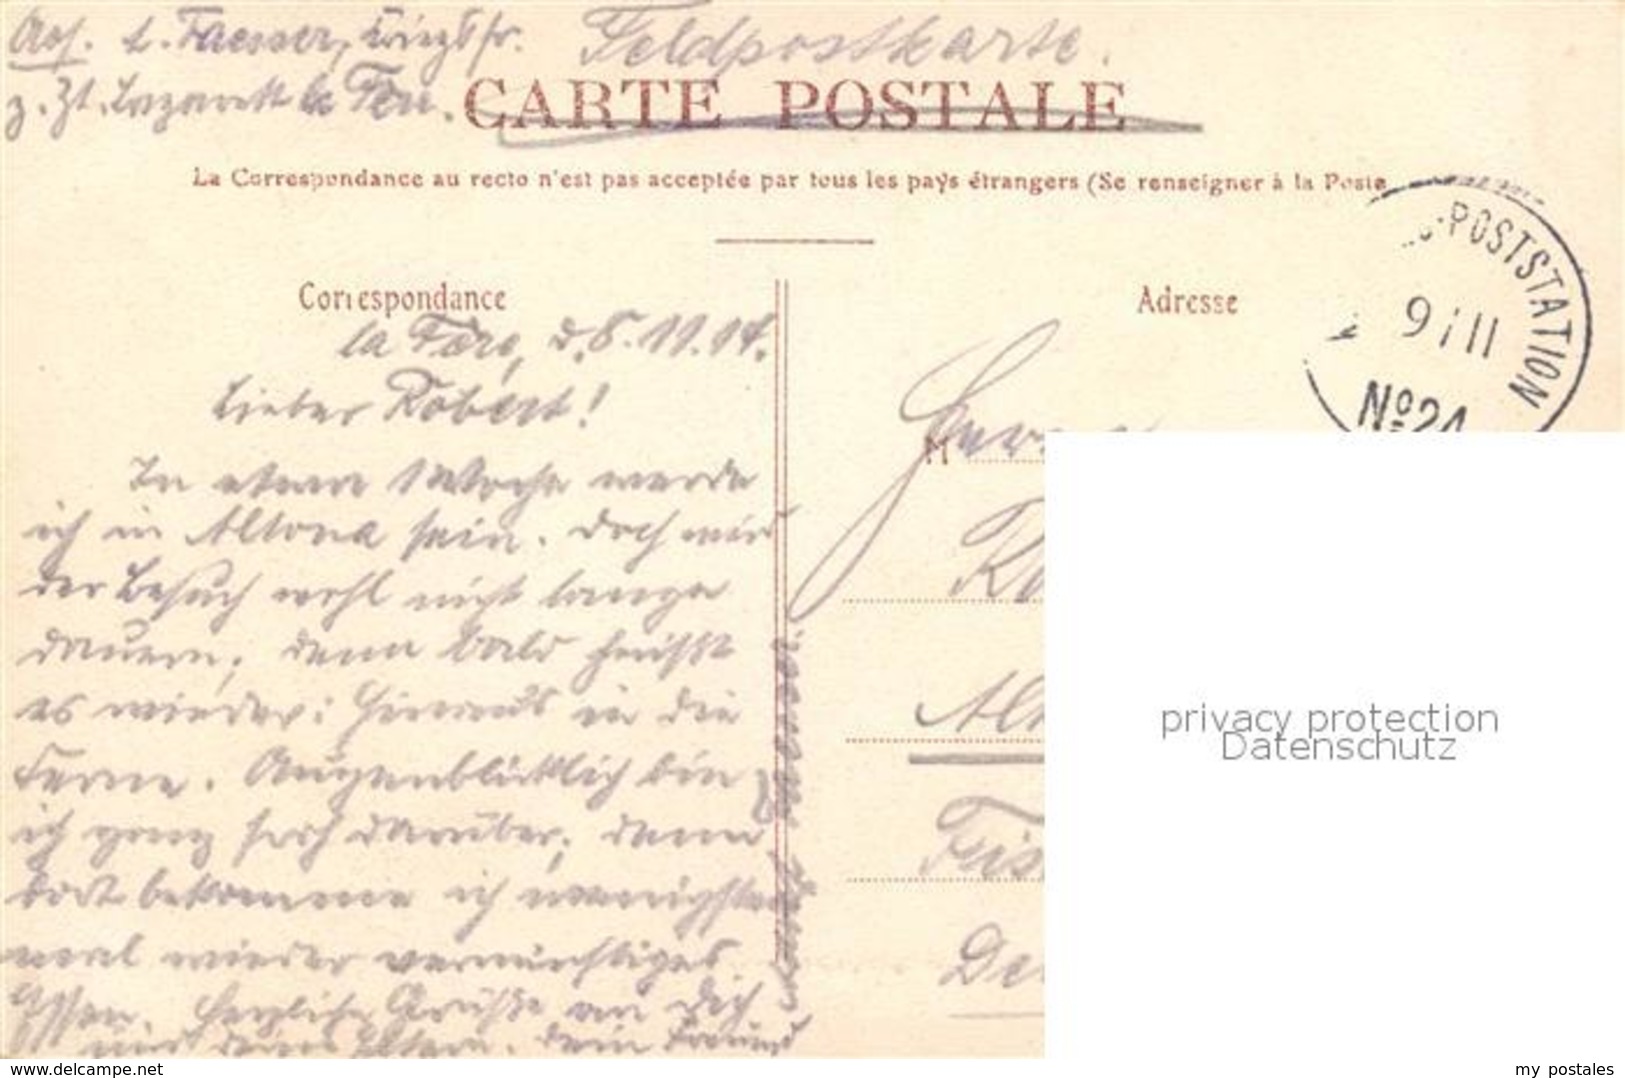 Abs. L. Faesser, Kriegsfr.
Feldpostkarte.
z. Zt. Lazarett la Fère.
CARTE POSTALE
La Correspondance au recto n'est pas acceptée par tous les pays étrangers (Se renseigner à la Poste
POSTSTATION
9/11
No 24
Correspondance
Adresse
la Fère, d. 8.11.14.
Lieber Robert!
In etwa 1 Woche werde
ich in Altona sein. Doch wird
der Besuch wohl nicht lange
dauern, denn bald heißt
es wieder: Hinaus in die
Ferne. Augenblicklich bin
ich ganz froh darüber, denn
dort bekomme ich wenigstens
mal wieder vernünftiges
Essen. Herzliche Grüße an Dich
und deine Eltern. Dein Freund
M
privacy protection
Datenschutz
www.delcampe.net
my postales